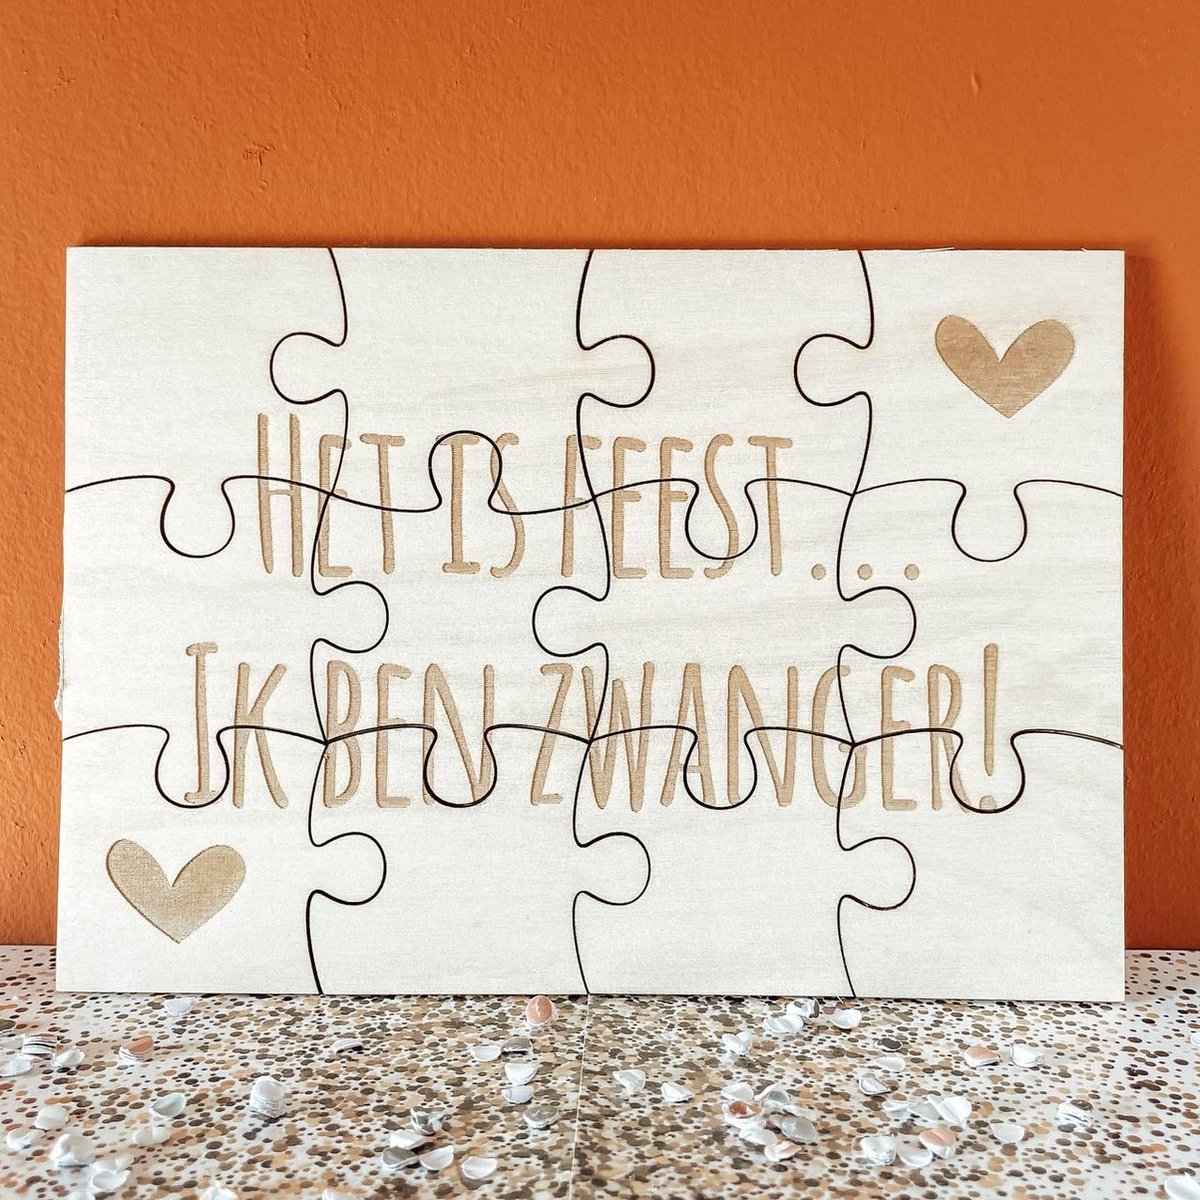 Het is feest...
Ik ben zwanger!